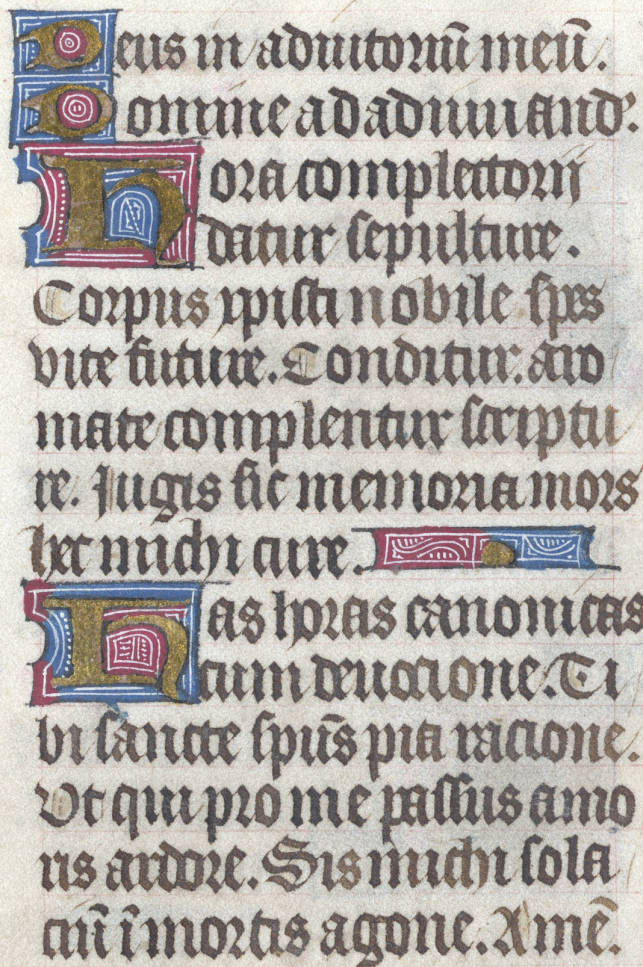 Deus in adiutoriū meū.
Domine ad adiuuand'
Hora completorij
datur sepulture.
Corpus xpisti nobile spes
vite future. Conditur aro
mate complentur scriptu
re. Jugis sit memoria mors
hec michi cure.
Has horas canonicas
cum deuocione. Ti
bi sancte spūs pia racione.
Ut qui pro me passus amo
ris ardore. Sis michi sola
ciū ī mortis agone. Amē.